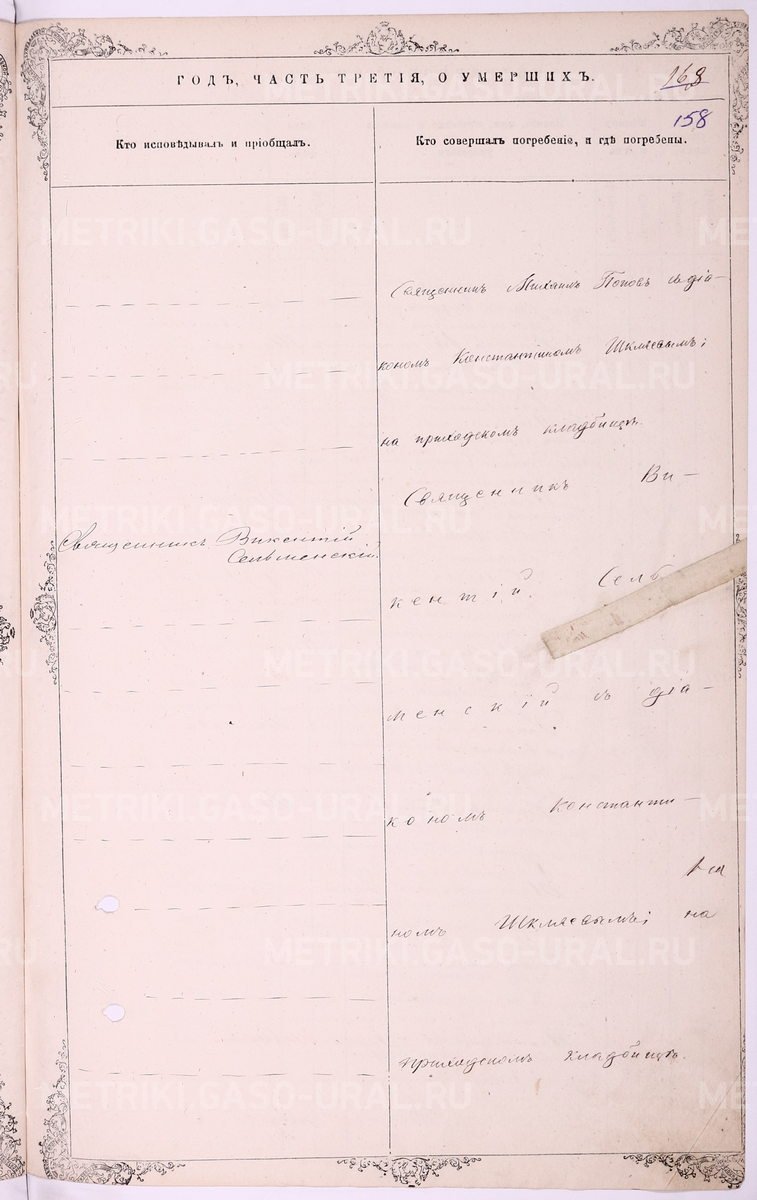 ГОДЪ, ЧАСТЬ ТРЕТІЯ, О УМЕРШИХЪ.
168
158
Кто исповѣдывалъ и пріобщалъ.
Кто совершалъ погребеніе, и гдѣ погребены.
Священникъ Михаилъ Поповъ съ діа-
кономъ Константиномъ Шкляевымъ;
на приходскомъ кладбищѣ.
Священникъ Викентій
Сельменскій.
Священникъ Ви-
кентій Сель
менскій съ діа-
кономъ Константи-
номъ Шкляевымъ; на
приходскомъ кладбищѣ.
METRIKI.GASO-URAL.RU